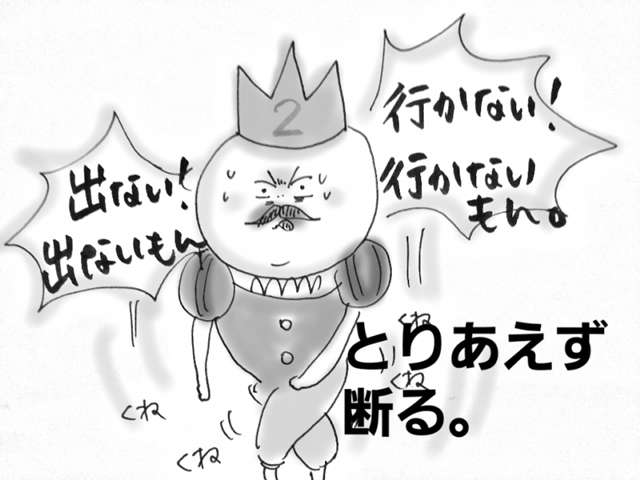 行かない!
行かない
もん。
出ない!
出ないもん
2
とりあえず
断る。
くね
くね
くね
くね